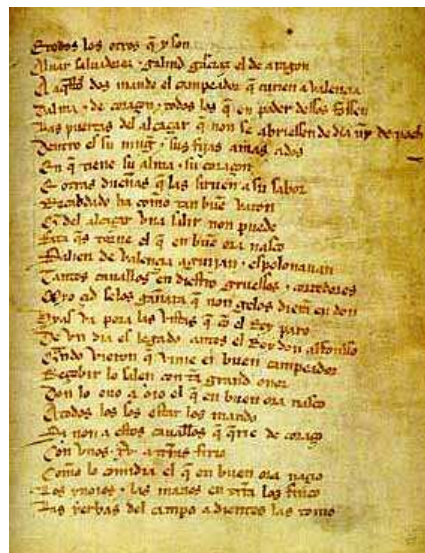 E todos los otros q̃ y son
Aluar saluadorez · galind garciaz el de aragon
A aq̃stos dos mando el campeador q̃ curien a valencia
Dalma · de coraçon · todos los q̃ en poder dessos fossen
Las puertas del alcaçar q̃ non se abriessen de dia ny de noch
Dentro es su mugr · sus fijas amas ados
En q̃ tiene su alma · su coraçon
E otras dueñas q̃ las siruen a su sabor
Recabdado ha como tan buẽ varon
Q̃ del alcaçar vna salir non puede
Fata q̃s torne el q̃ en buẽ ora nasco
Salien de valencia aguijan · espolonauan
Tantos cauallos en diestro gruessos · corredores
Myo çid selos gañara q̃ non gelos dierã en don
Hyas va pora las vistas q̃ cõ el Rey paro
De vn dia es legado antes el Rey don alfonsso
Quãdo vieron q̃ vinie el buen campeador
Reçebir lo salen con tã grand onor
Don lo ouo a oio el q̃ en buen ora nasco
A todos los estar los mando
Si non a estos cauallos q̃ q̃rie de coraço
Con vnos · xv · a tr̃ras firio
Commo lo comidia el q̃ en buen ora naçio
Los ynoios · las manos en tr̃ra los finco
Las yerbas del campo a dientes las tomo